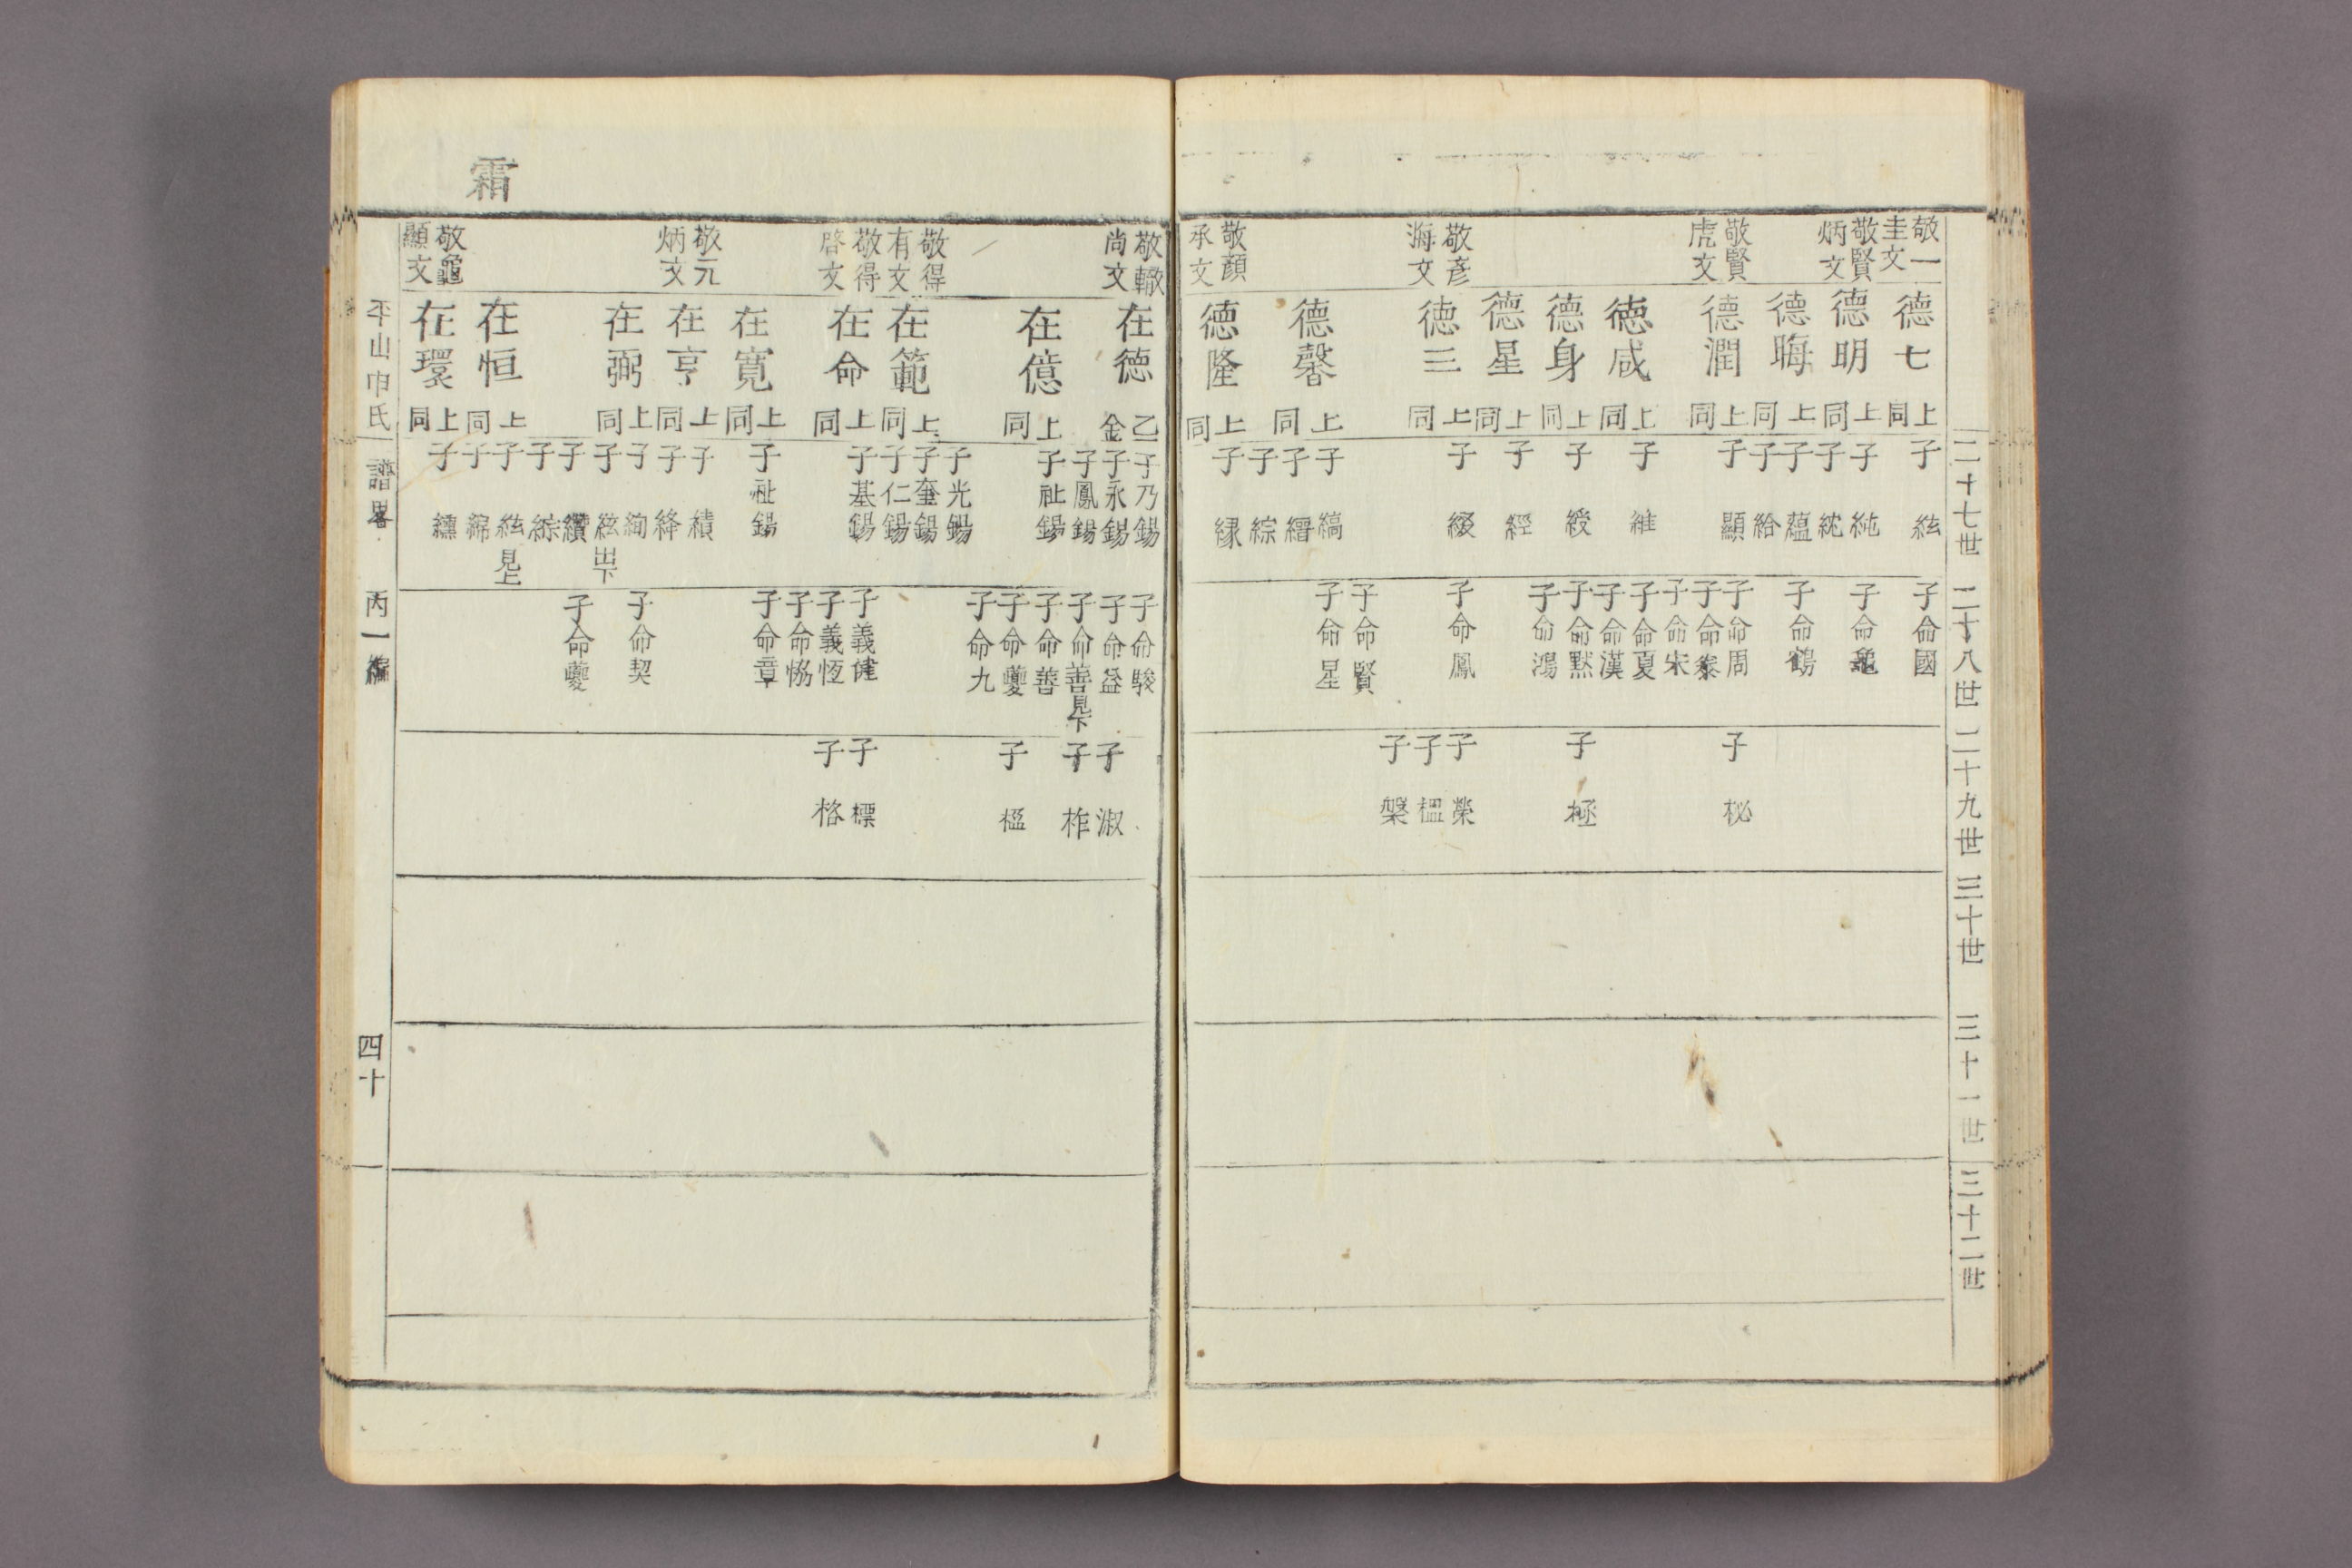 二十七世
二十八世
二十九世
三十世
三十一世
三十二世
敬一
圭文
敬賢
炳文
敬賢
虎文
敬彦
海文
敬顔
承文
德七
德明
德晦
德潤
德咸
德身
德星
德三
德馨
德隆
上同
上同
上同
上同
上同
上同
上同
上同
上同
上同
子 絃
子 純
子 統
子 蘊
子 給
子 顯
子 維
子 綬
子 經
子 綴
子 縞
子 縉
子 綜
子 緑
子命國
子命龜
子命鶴
子命周
子命泰
子命宋
子命夏
子命漢
子命黙
子命鴻
子命鳳
子命賢
子命星
子 柲
子 極
子 榮
子 榲
子 槃
霜
敬轍
尚文
敬得
有文
敬得
啓文
敬元
炳文
敬龜
顯文
在德
在億
在範
在命
在寛
在亨
在弼
在恒
在環
乙金
上同
上同
上同
上同
上同
上同
上同
上同
子乃錫
子永錫
子鳳錫
子祉錫
子光錫
子奎錫
子仁錫
子基錫
子祉錫
子 績
子 絳
子 絢
子 絃出下
子 纘
子 綜
子 絃見上
子 綿
子 纁
子命駿
子命益
子命善見下
子命善
子命夔
子命九
子義健
子義恆
子命恊
子命章
子命契
子命夔
子 淑
子 柞
子 楹
子 標
子 格
平山申氏 譜畧 丙一編 四十